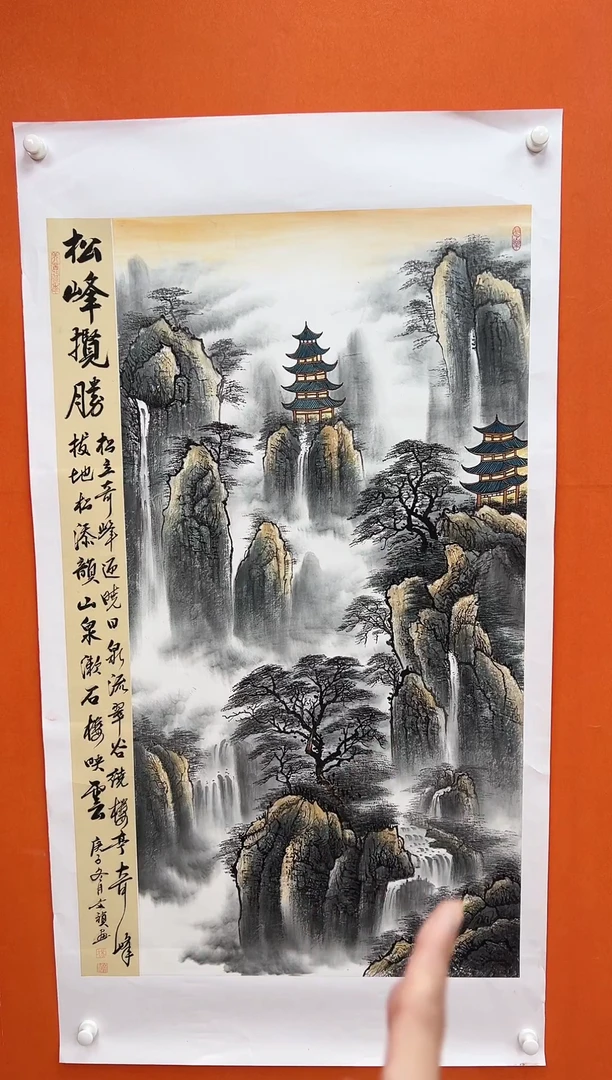 松峰攬勝
松立奇峰迎曉日泉流翠谷繞樓亭奇峰
拔地松添韻山泉漱石樓映雲
庚子冬月文禎画